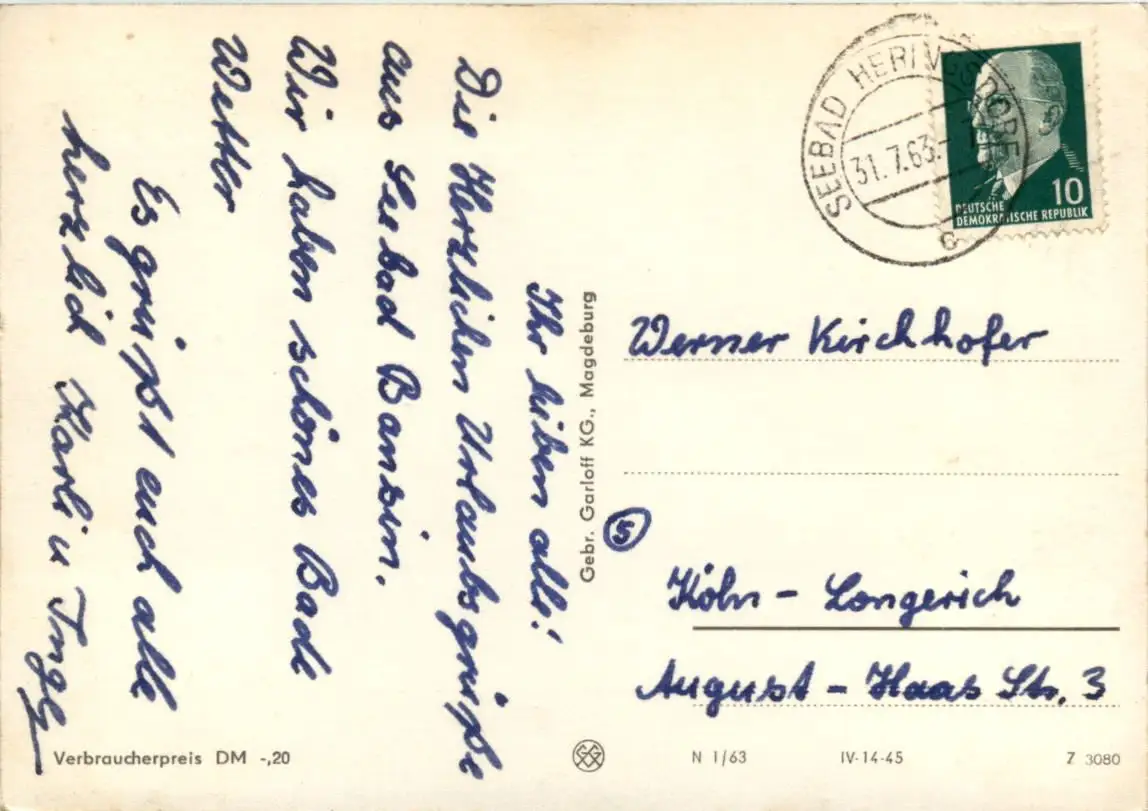 Ihr lieben alle!
Die Herzlichen Urlaubsgrüße
aus Seebad Bansin.
Wir haben schönes Bade
Wetter
Es grüßt euch alle
herzlich Karli u Inge
Gebr. Garloff KG., Magdeburg
SEEBAD HERINGSDORF
31.7.63.
c
10
DEUTSCHE
DEMOKRATISCHE REPUBLIK
Werner Kirchhofer
5
Köln - Longerich
August - Haas Str. 3
Verbraucherpreis DM -,20
N 1/63
IV-14-45
Z 3080